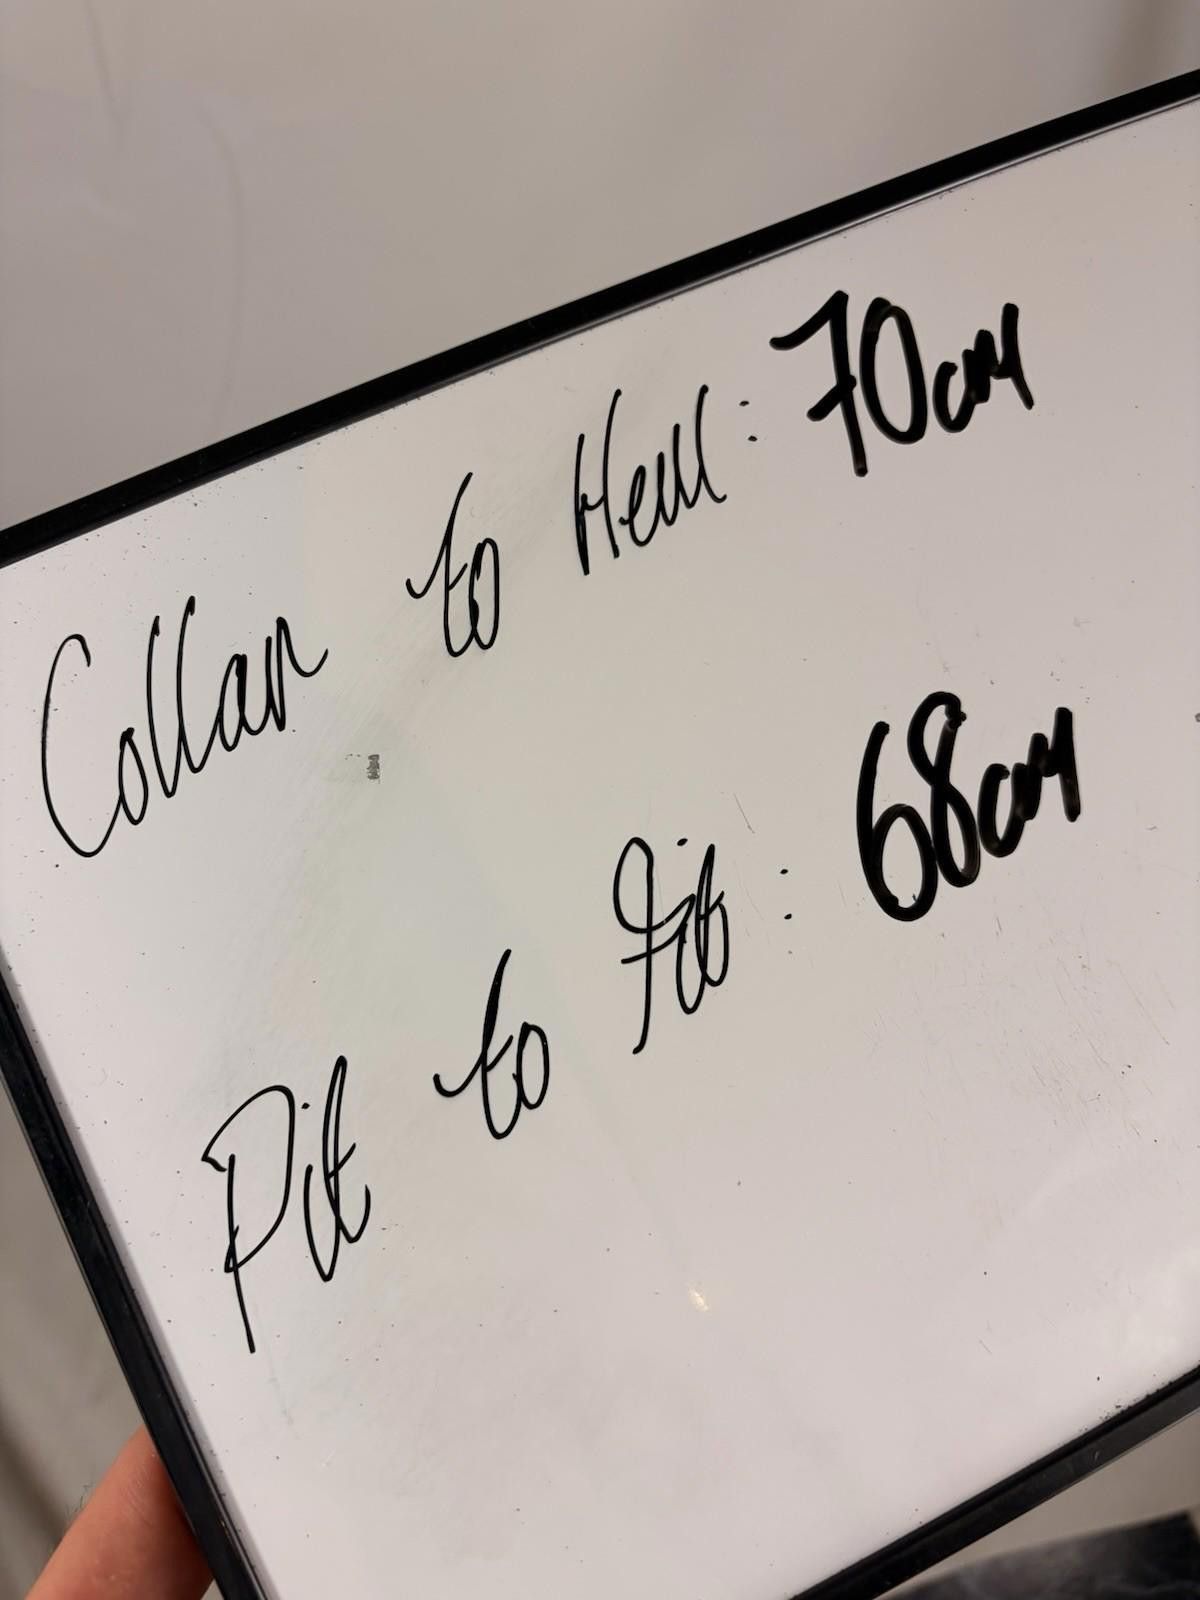 Collar to Hem: 70cm
Pit to Pit: 68cm